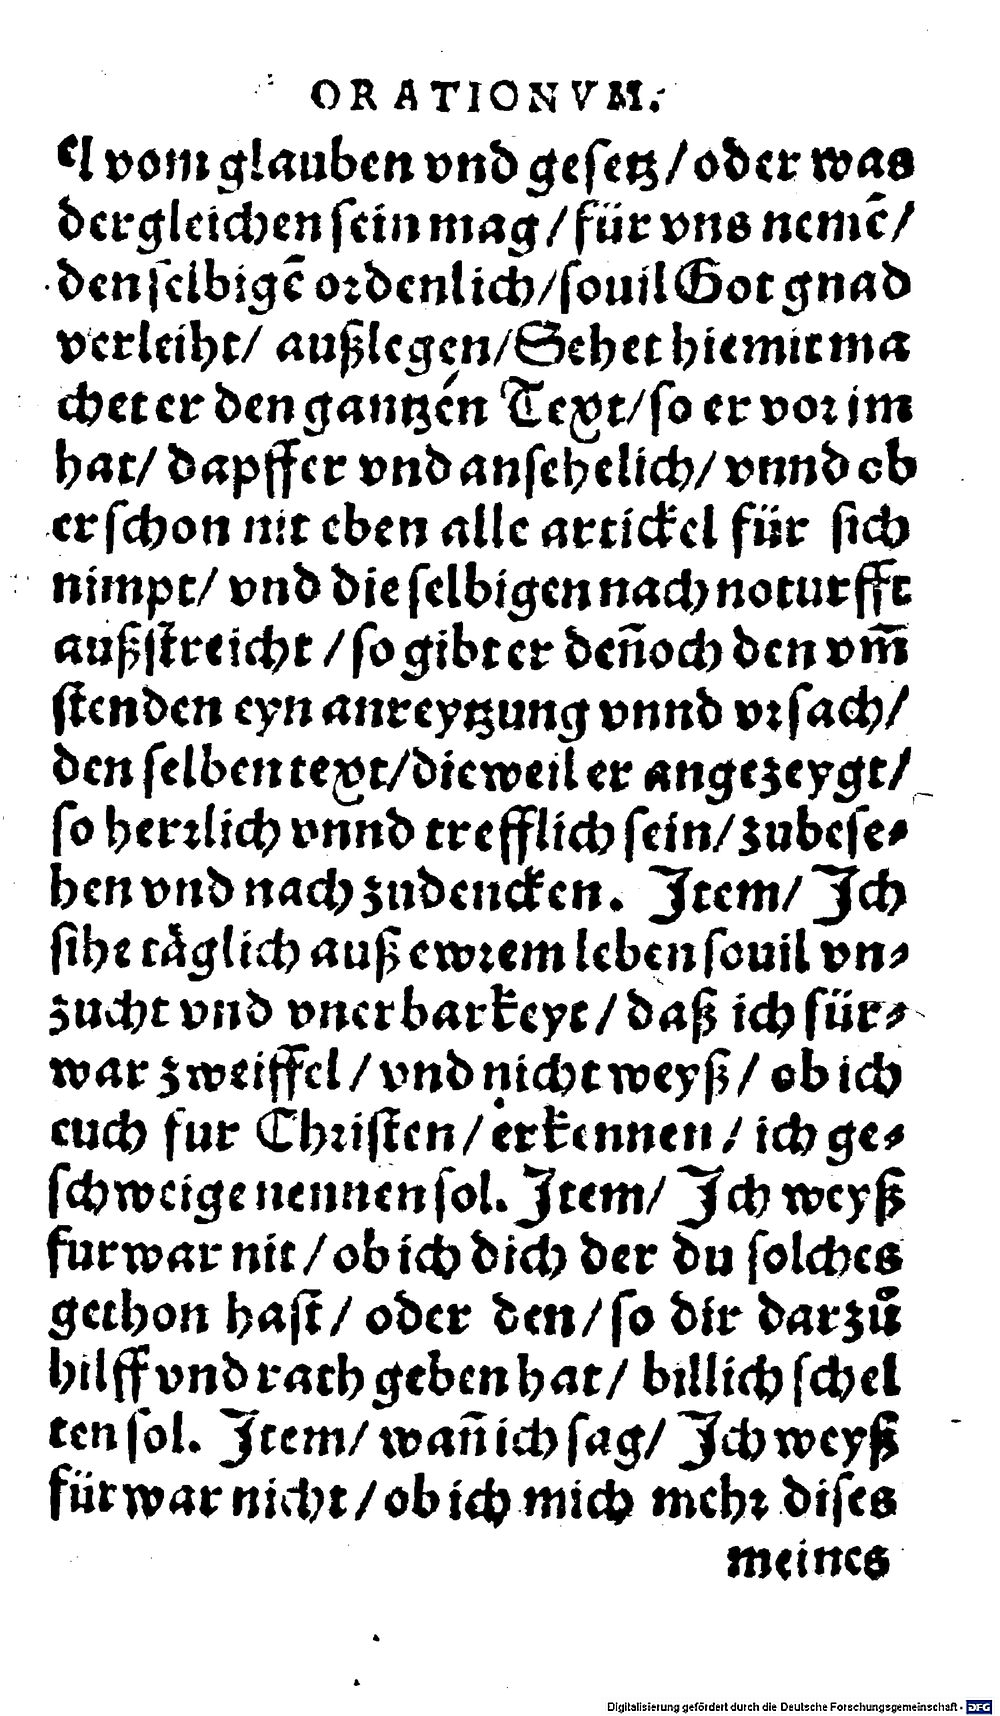 ORATIONVM.
el vom glauben vnd gesetz/oder was
dergleichen sein mag/für vns nemē/
den selbigē ordenlich/souil Got gnad
verleiht/ außlegen/Sehet hiemit ma
chet er den gantzen Text/so er vor im
hat/ dapffer vnd ansehelich/ vnnd ob
er schon nit eben alle artickel für sich
nimpt/ vnd die selbigen nach noturfft
außstreicht/so gibt er deñoch den vm̄
stenden eyn anreytzung vnnd vrsach/
den selben text/dieweil er angezeygt/
so herrlich vnnd trefflich sein/zubese-
hen vnd nach zudencken. Item/ Ich
sihe täglich auß ewrem leben souil vn-
zucht vnd vnerbarkeyt/daß ich für-
war zweiffel/vnd nicht weyß/ ob ich
euch fur Christen/erkennen/ ich ge-
schweige nennen sol. Item/ Ich weyß
furwar nit/ob ich dich der du solches
gethon hast/ oder den/so dir darzů
hilff vnd rath geben hat/ billich schel
ten sol. Item/ wañ ich sag/ Ich weyß
fürwar nicht/ob ich mich mehr dises
meines
Digitalisierung gefördert durch die Deutsche Forschungsgemeinschaft - DFG